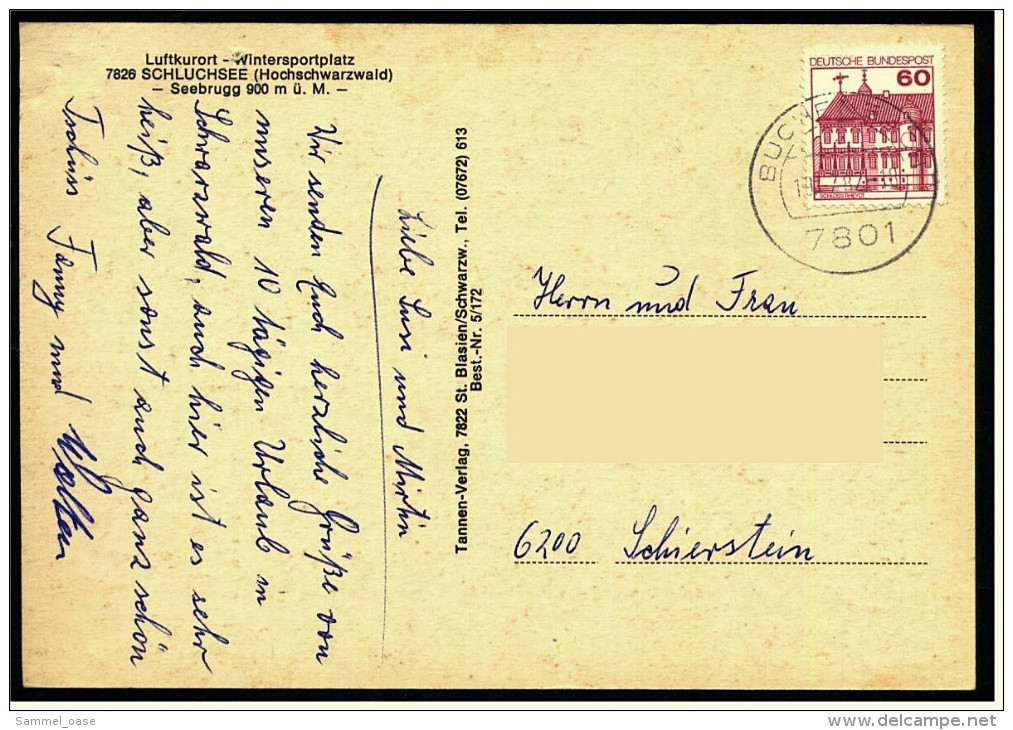 Luftkurort - Wintersportplatz
7826 SCHLUCHSEE (Hochschwarzwald)
- Seebrugg 900 m ü. M. -
Liebe Susi und Martin
Wir senden Euch herzliche Grüße von
unseren 10 tägigen Urlaub in
Schwarzwald, auch hier ist es sehr
heiß, aber sonst auch ganz schön
Fanny und Walter
Tannen-Verlag, 7822 St. Blasien/Schwarzw., Tel. (07672) 613
Best.-Nr. 5/172
DEUTSCHE BUNDESPOST
60
7801
Herrn und Frau
6200 Schierstein
Sammel_oase
www.delcampe.net